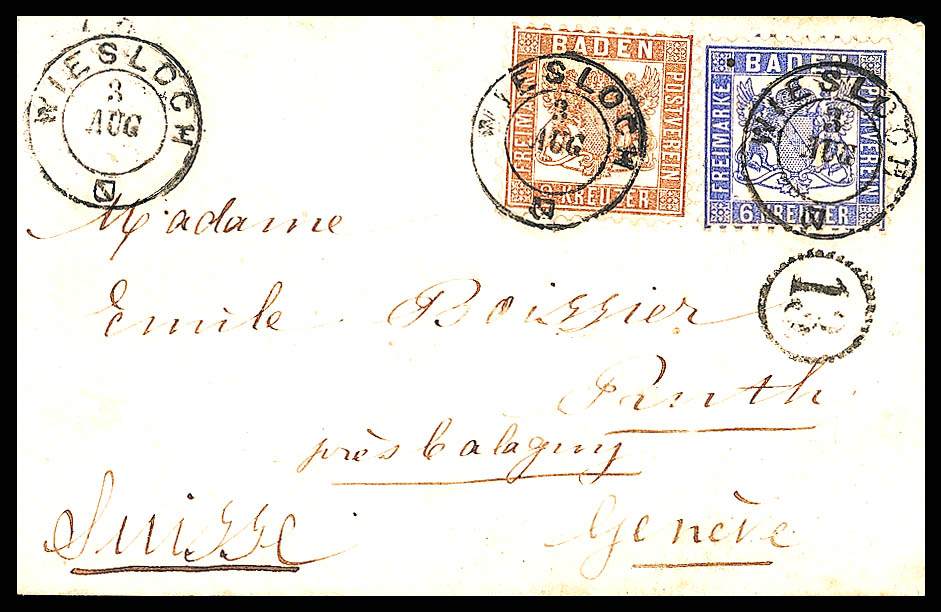 WIESLOCH
3
AUG
BADEN
FREIMARKE
POSTVEREIN
KREUZER
WIESLOCH
3
AUG
BADEN
FREIMARKE
POSTVEREIN
6 KREUZER
WIESLOCH
3
AUG
Madame
Emile Boissier
près
Genève
Suisse